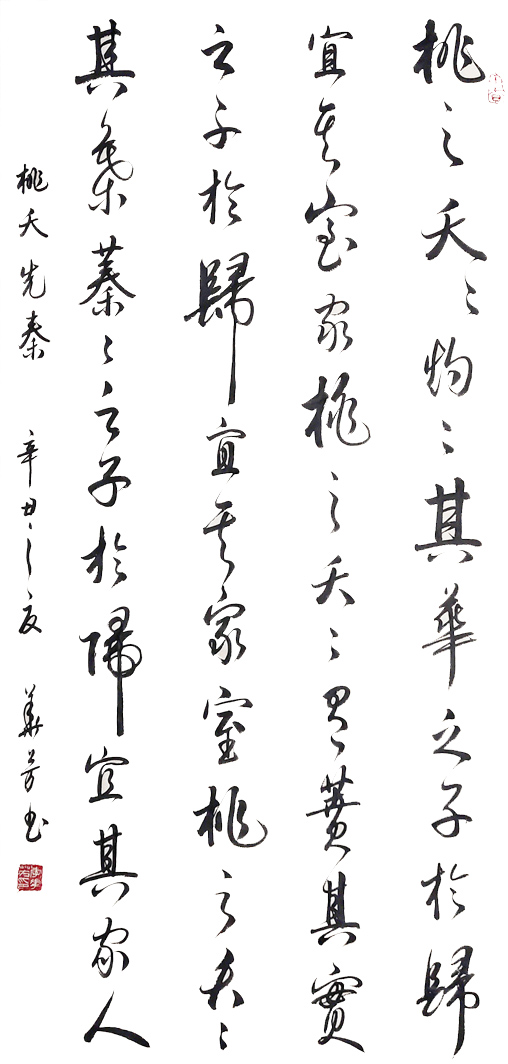 桃之夭〻灼〻其華之子於歸
宜其室家桃之夭〻有蕡其實
之子於歸宜其家室桃之夭〻
其葉蓁〻之子於歸宜其家人
桃夭先秦 辛丑之夏 華芳书